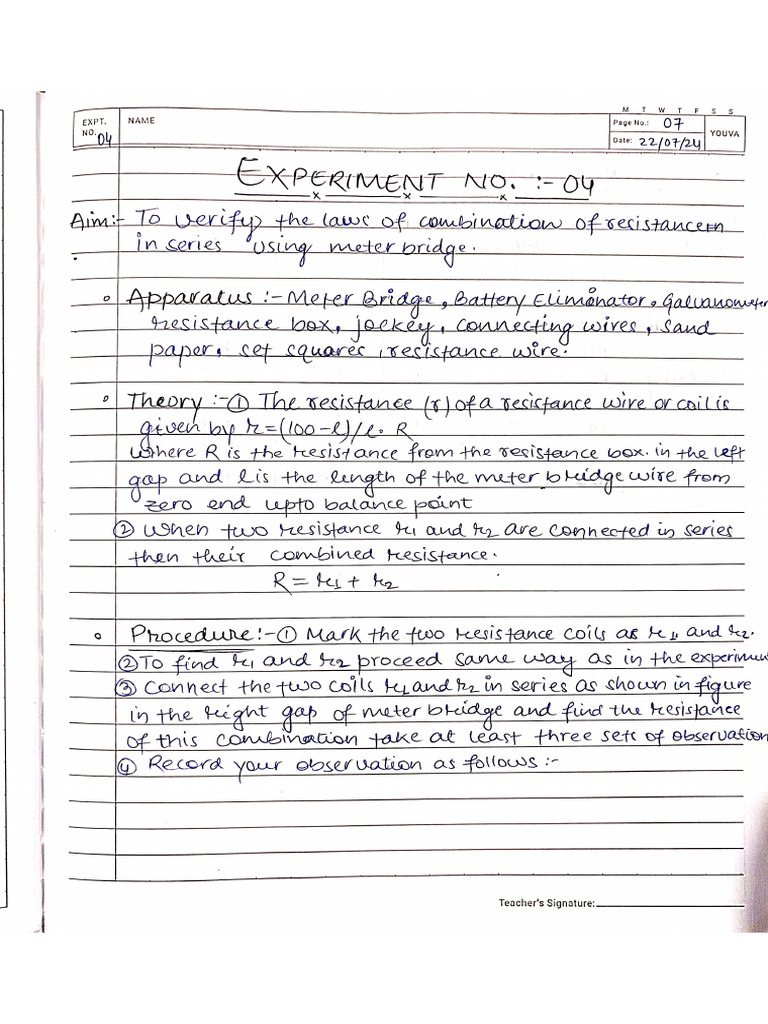 M T W T F S S
EXPT. NO. 04 NAME Page No.: 07 YOUVA
Date: 22/07/24
EXPERIMENT NO. :- 04
Aim:- To verify the laws of combination of resistance in
in series using meter bridge.
Apparatus :- Meter Bridge, Battery Eliminator, Galvanometer
resistance box, jockey, connecting wires, sand
paper, set squares, resistance wire.
Theory :- ① The resistance (r) of a resistance wire or coil is
given by r = (100-l)/l. R
where R is the resistance from the resistance box. in the left
gap and l is the length of the meter bridge wire from
zero end upto balance point
② When two resistance r1 and r2 are connected in series
then their combined resistance.
R = r1 + r2
Procedure :- ① Mark the two resistance coils as r1 and r2.
② To find r1 and r2 proceed same way as in the experimen
③ Connect the two coils r1 and r2 in series as shown in figure
in the right gap of meter bridge and find the resistance
of this combination take at least three sets of observation
④ Record your observation as follows :-
Teacher's Signature: